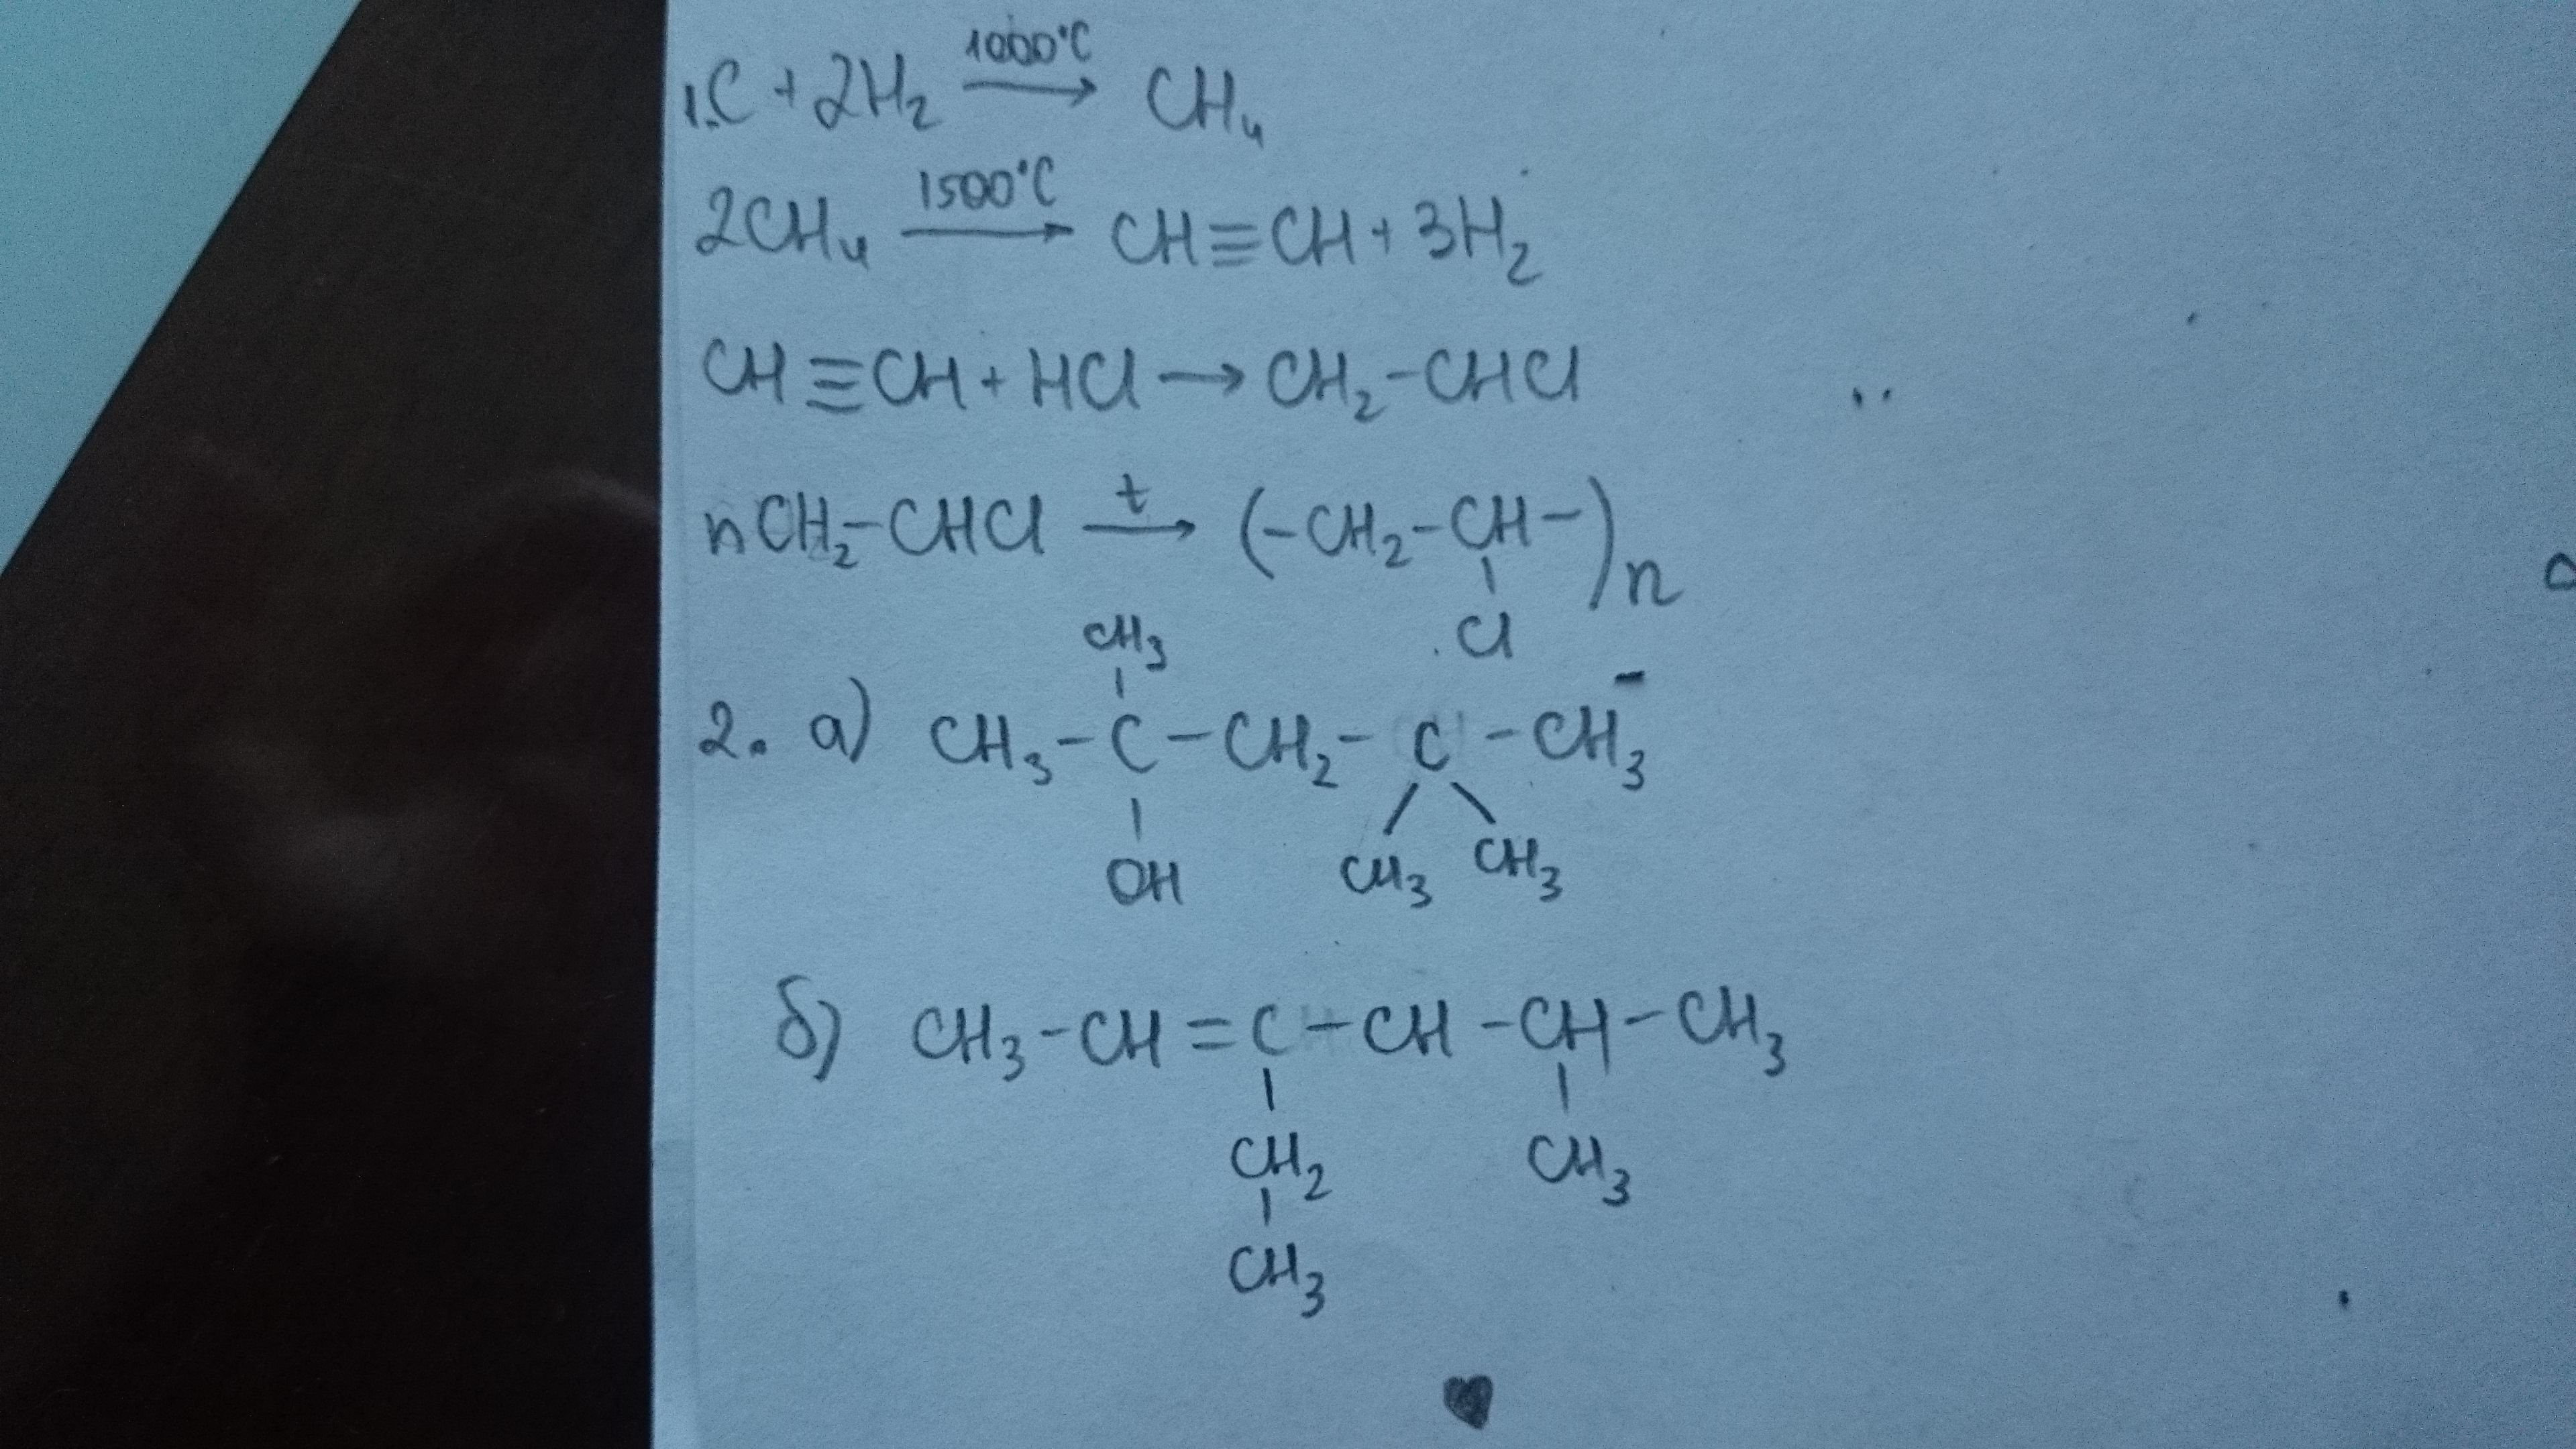 1. C + 2H₂ 1000°C → CH₄
2CH₄ 1500°C → CH≡CH + 3H₂
CH≡CH + HCl → CH₂-CHCl
nCH₂-CHCl t → (-CH₂-CH-)n
Cl
CH₃
2. а) CH₃-C-CH₂-C-CH₃
OH CH₃ CH₃
б) CH₃-CH=C-CH-CH-CH₃
CH₂ CH₃
CH₃